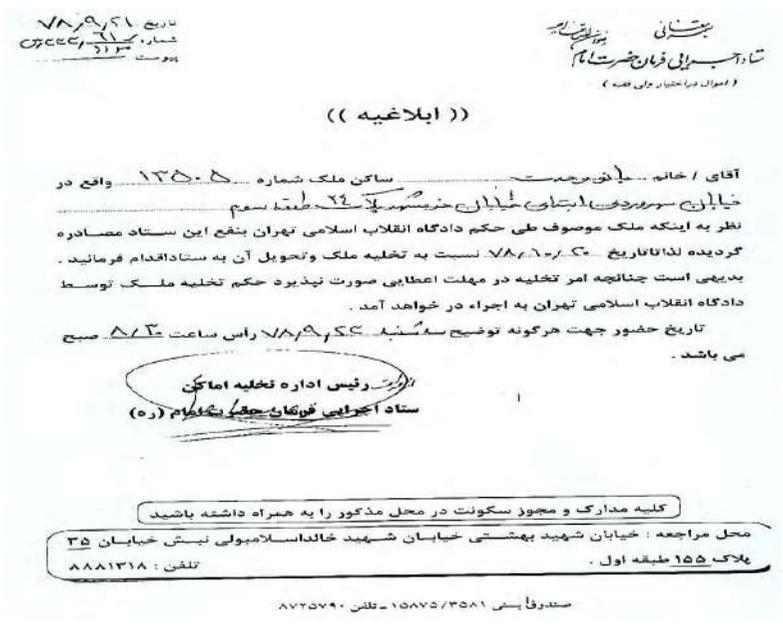 بسمه تعالی
ستاد اجرایی فرمان حضرت امام
( اموال در اختیار ولی فقیه )
تاریخ ۷۸٫۹٫۲۱
شماره
پیوست
(( ابلاغیه ))
آقای / خانم بانو وحدت ساکن ملک شماره ۱۳۵۰۵ واقع در
خیابان سهروردی ابتدای خیابان خرمشهر پلاک ۲۴ طبقه سوم
نظر به اینکه ملک موصوف طی حکم دادگاه انقلاب اسلامی تهران بنفع این ستاد مصادره
گردیده لذاتاتاریخ ۷۸/۱۰/۲۰ نسبت به تخلیه ملک وتحویل آن به ستاداقدام فرمائید .
بدیهی است چنانچه امر تخلیه در مهلت اعطایی صورت نپذیرد حکم تخلیه ملک توسط
دادگاه انقلاب اسلامی تهران به اجراء در خواهد آمد .
تاریخ حضور جهت هرگونه توضیح سه شنبه ۷۸٫۹٫۲۳ راس ساعت ۸/۳۰ صبح
می باشد .
رئیس اداره تخلیه اماکن
ستاد اجرایی فرمان حضرت امام (ره)
کلیه مدارک و مجوز سکونت در محل مذکور را به همراه داشته باشید
محل مراجعه : خیابان شهید بهشتی خیابان شهید خالداسلامبولی نبش خیابان ۳۵
پلاک ۱۵۵ طبقه اول . تلفن : ۸۸۸۱۳۱۸
صندوق پستی ۱۵۸۷۵/۳۵۸۱ ـ تلفن ۸۷۲۵۷۹۰